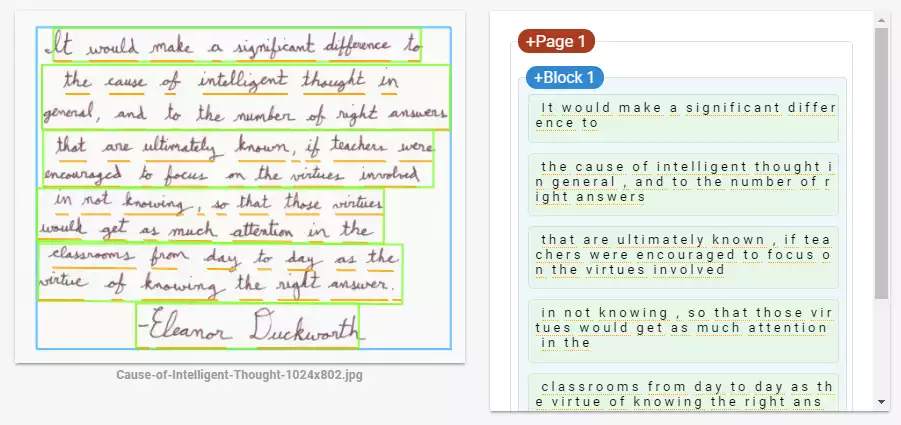 It would make a significant difference to
the cause of intelligent thought in
general, and to the number of right answers
that are ultimately known, if teachers were
encouraged to focus on the virtues involved
in not knowing, so that those virtues
would get as much attention in the
classrooms from day to day as the
virtue of knowing the right answer.
-Eleanor Duckworth
Cause-of-Intelligent-Thought-1024x802.jpg
+Page 1
+Block 1
It would make a significant differ
ence to
the cause of intelligent thought i
n general , and to the number of r
ight answers
that are ultimately known , if tea
chers were encouraged to focus o
n the virtues involved
in not knowing , so that those vir
tues would get as much attention
in the
classrooms from day to day as th
e virtue of knowing the right ans